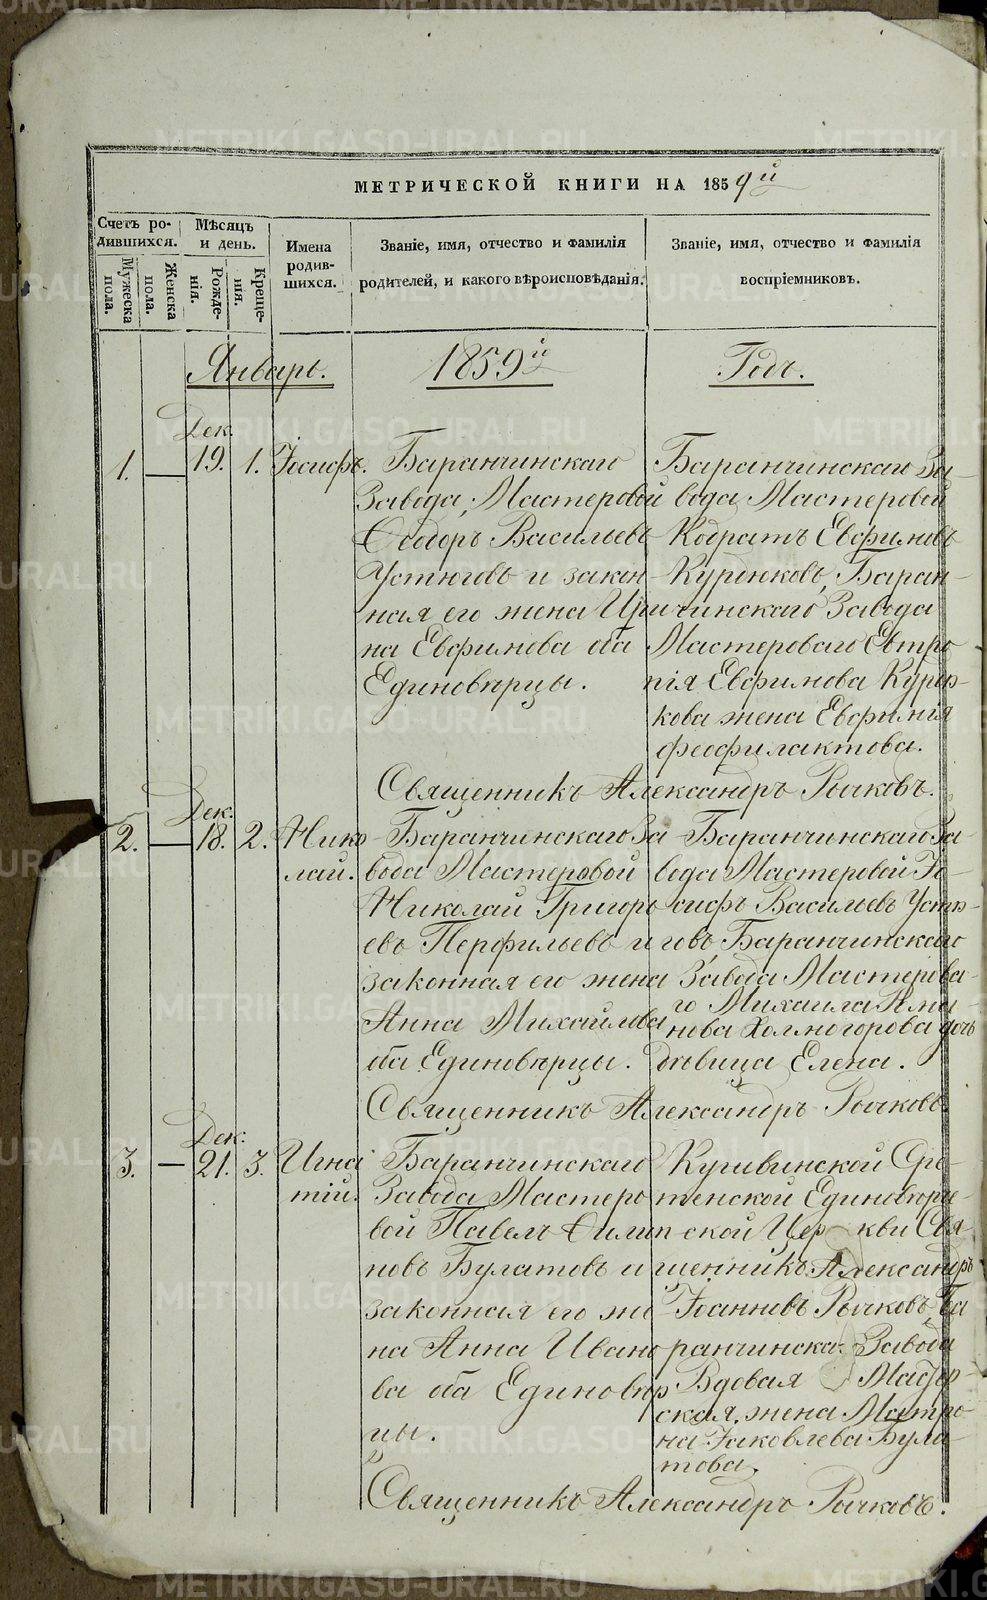 МЕТРИЧЕСКОЙ КНИГИ НА 1859й
Счетъ ро-
дившихся.
Мѣсяцъ
и день.
Имена
родив-
шихся.
Званіе, имя, отчество и фамилія
родителей, и какого вѣроисповѣданія.
Званіе, имя, отчество и фамилія
воспріемниковъ.
Мужеска
пола.
Женска
пола.
Рожде-
нія.
Креще-
нія.
Январь. 1859й Годъ.
1. — Дек. 19. 1. Іосифъ.
Баранчинскаго
Завода, Мастеровой
Ѳедоръ Васильевъ
Устюговъ и закон-
ная его жена Ири
на Евфимова оба
Единовѣрцы.
Баранчинскаго За-
вода Мастеровой
Кодратъ Евфимовъ
Куренковъ, Баран-
чинскаго Завода
Мастероваго Евтро
пія Евфимова Курен-
кова жена Евфимія
Феофилактова.
Священникъ Александръ Рычковъ.
2. — Дек. 18. 2. Нико
лай.
Баранчинскаго За
вода Мастеровой
Николай Григорь
евъ Перфильевъ и
законная его жена
Анна Михайлова
оба Единовѣрцы.
Баранчинскаго За
вода Мастеровой Іо-
сифъ Васильевъ Устю-
говъ, Баранчинскаго
Завода Мастерова-
го Михаила
нова Холмогорова дочь
дѣвица Елена.
Священникъ Александръ Рычковъ.
3. — Дек. 21. 3. Игна
тій.
Баранчинскаго
Завода Мастеро
вой Павелъ Филип
повъ Булатовъ и
законная его же
на Анна Ивано
ва оба Единовѣр
цы.
Кушвинской Срѣ-
тенской Единовѣрче-
ской Церкви Свя-
щенникъ Александръ
Іоанновъ Рычковъ, Ба
ранчинска. Завода
Вдовая Мастер-
ская жена Матро-
на Іаковлева Була
това.
Священникъ Александръ Рычковъ.
METRIKI.GASO-URAL.RU